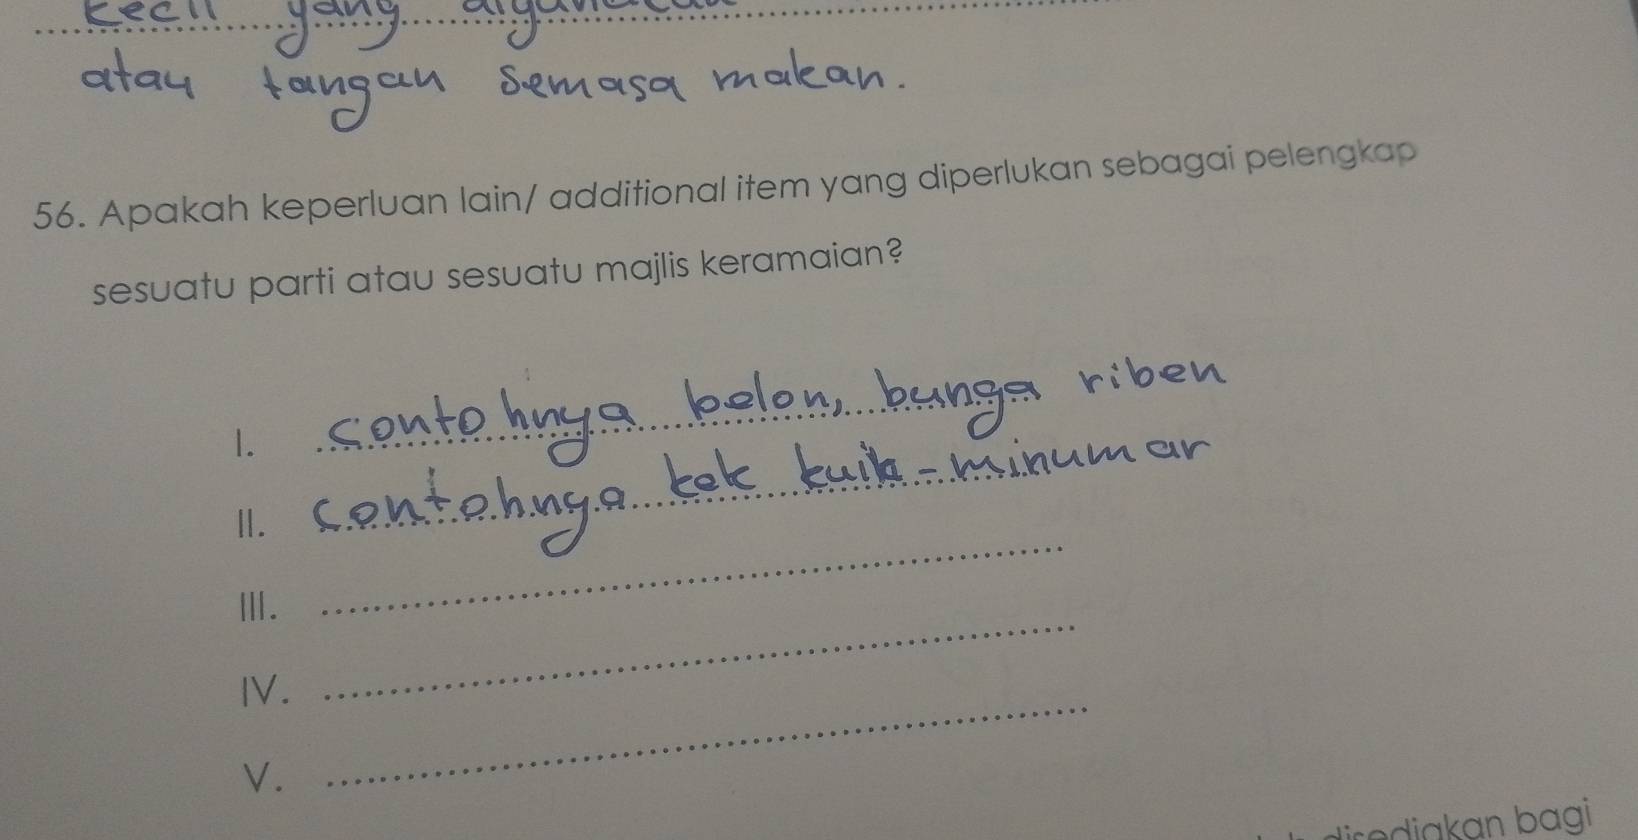 kecil yang
atau tangan semasa makan.
56. Apakah keperluan lain/ additional item yang diperlukan sebagai pelengkap
sesuatu parti atau sesuatu majlis keramaian?
I. contohnya belon, bunga riben
II. contohnya kek kuih-minumar
III.
IV.
V.
disediakan bagi